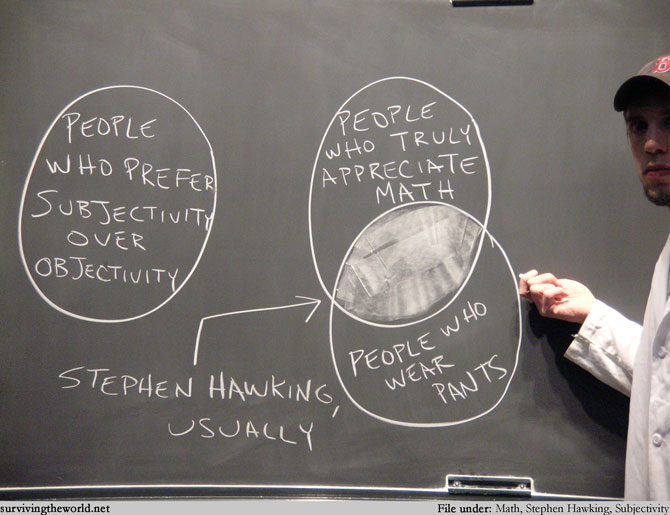 PEOPLE
WHO PREFER
SUBJECTIVITY
OVER
OBJECTIVITY
PEOPLE
WHO TRULY
APPRECIATE
MATH
PEOPLE WHO
WEAR
PANTS
STEPHEN HAWKING,
USUALLY
B
survivingtheworld.net
File under: Math, Stephen Hawking, Subjectivity